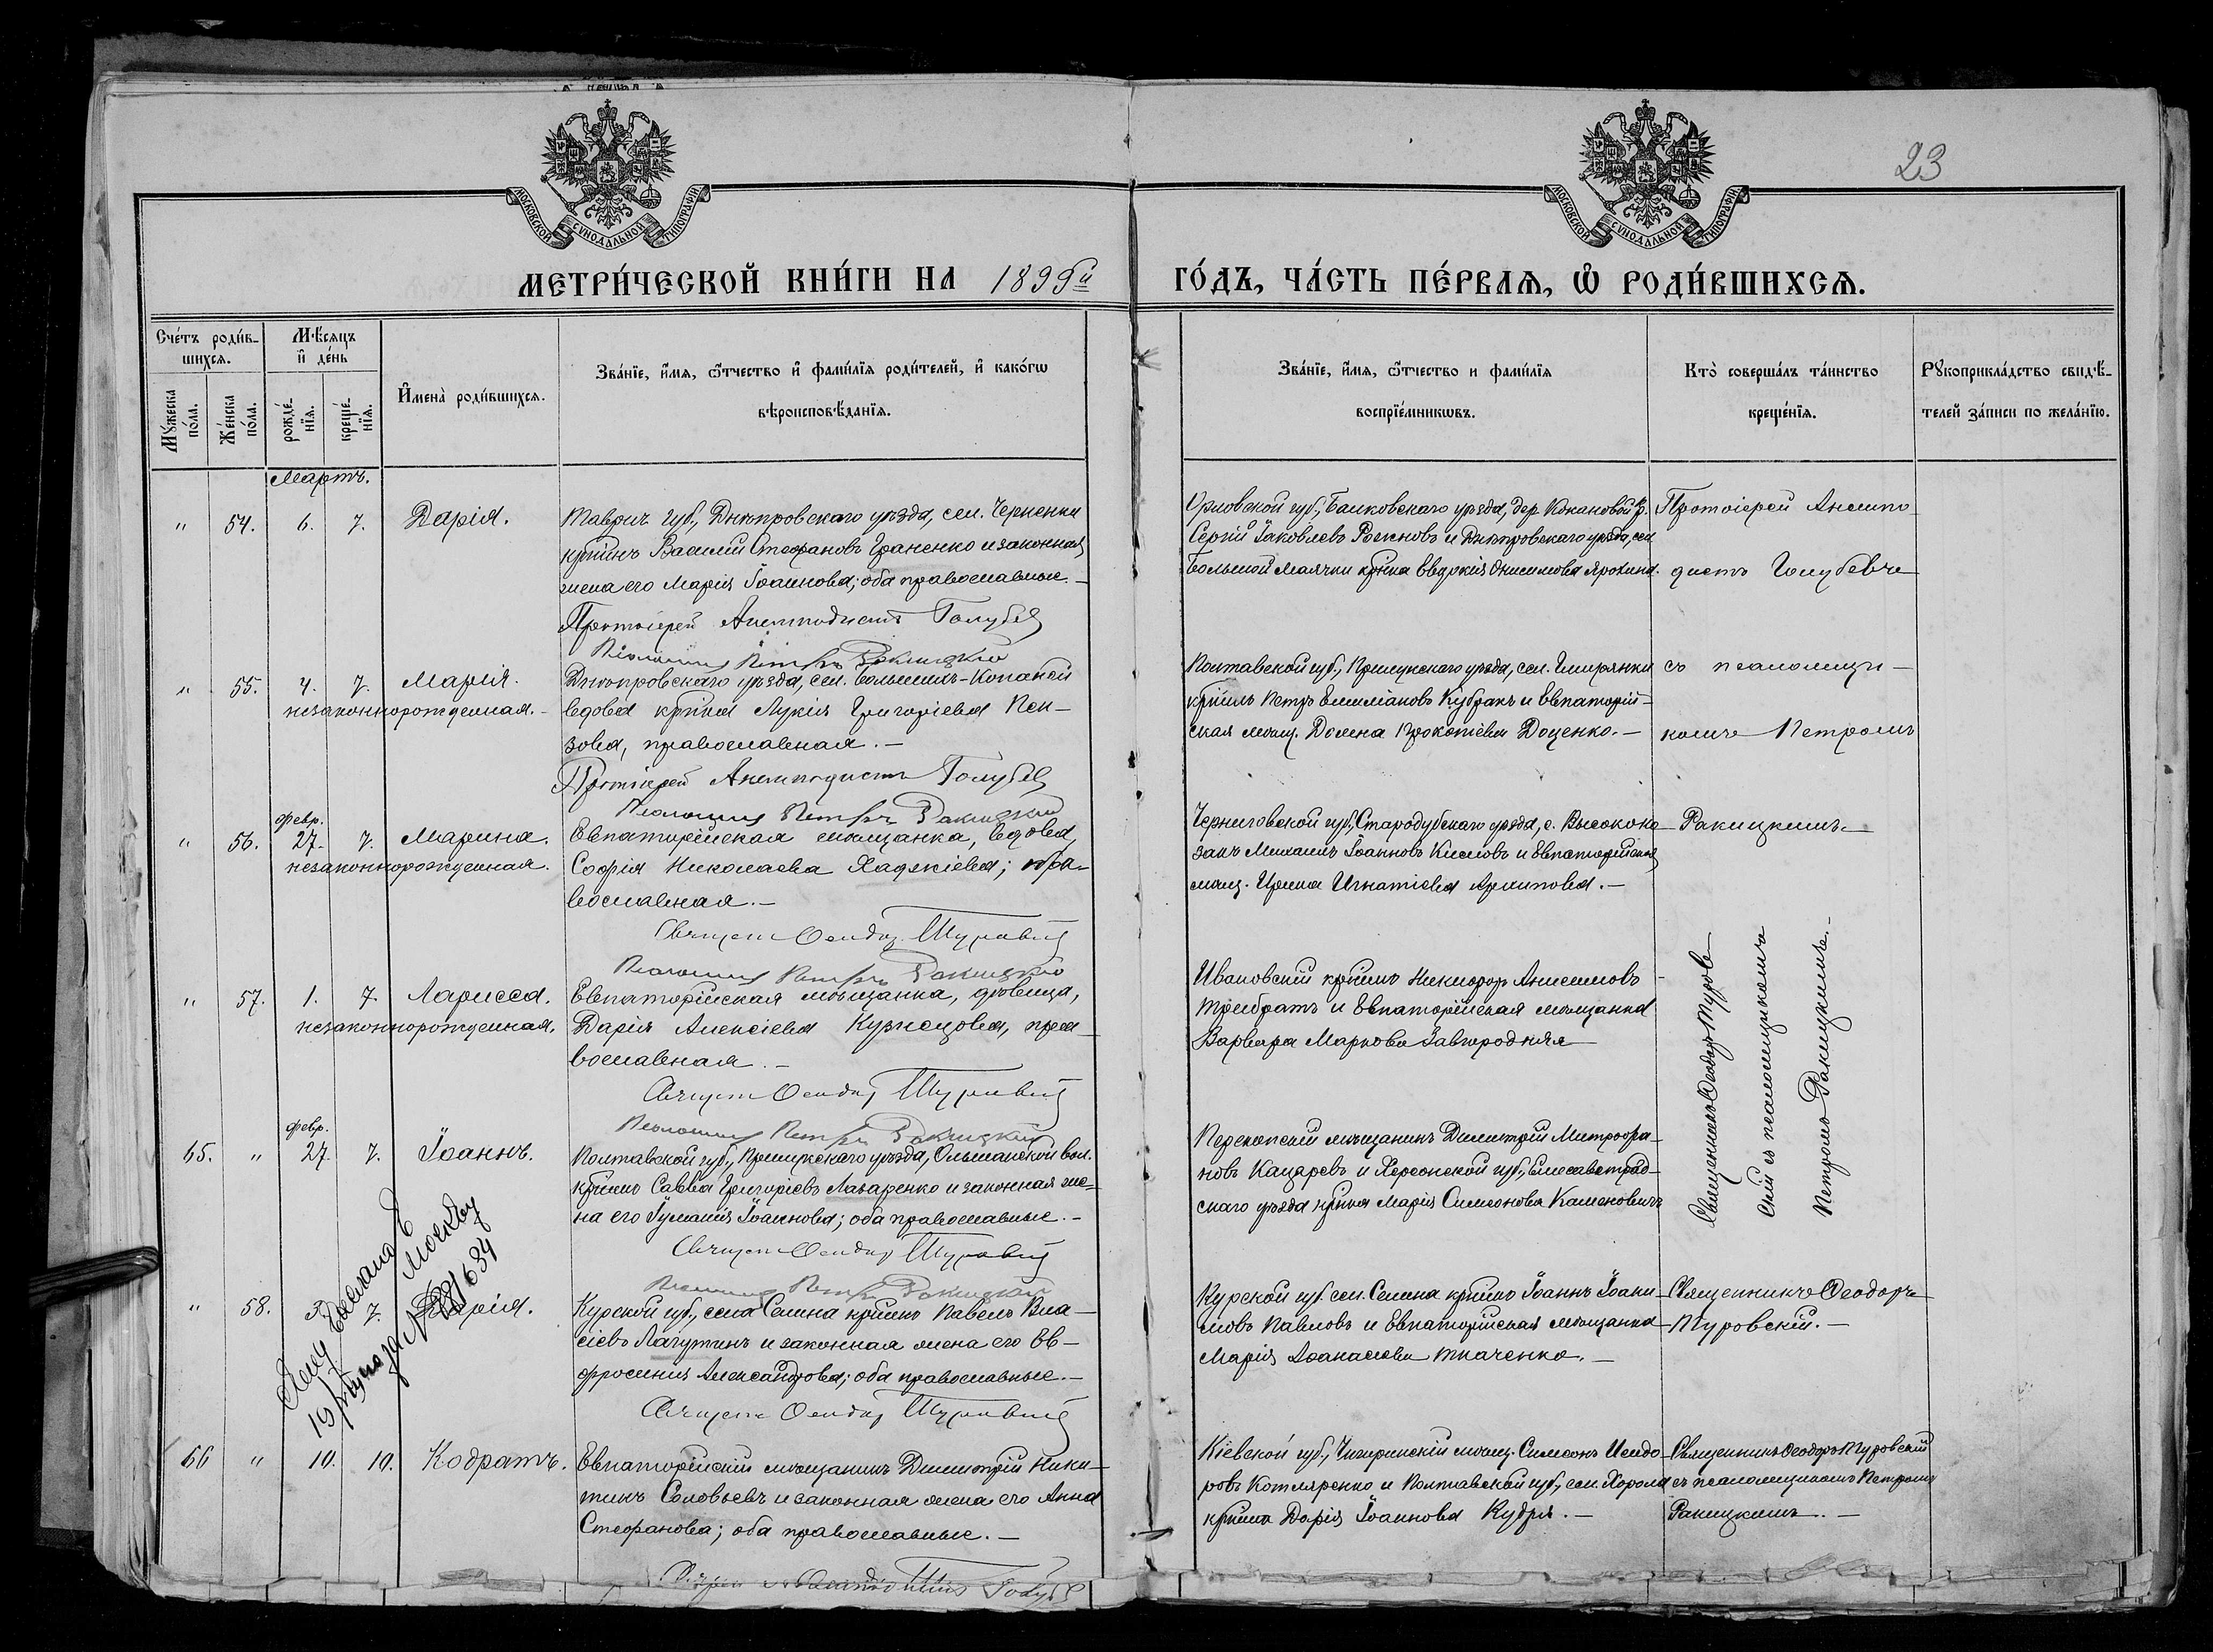 МОСКОВСКОЙ СѴНОДАЛЬНОЙ ТИПОГРАФІИ
МОСКОВСКОЙ СѴНОДАЛЬНОЙ ТИПОГРАФІИ
23
МЕТРИ́ЧЕСКОЙ КНИ́ГИ НА 1899й ГО́ДЪ, ЧА́СТЬ ПЕ́РВАѦ, Ѽ РОДИ́ВШИХСѦ.
Сче́тъ роди́в-
шихсѧ.
Мѣ́сѧцъ
и҆ де́нь
Мꙋ́жеска
по́ла.
Же́нска
по́ла.
рожде́-
нїѧ.
креще́-
нїѧ.
И҆мена̀ роди́вшихсѧ.
Зва́нїе, и҆́мѧ, ѻ҆́тчество и҆ фами́лїѧ роди́телей, и҆ како́гѡ
вѣроисповѣ́данїѧ.
Зва́нїе, и҆́мѧ, ѻ҆́тчество и фами́лїѧ
воспрїе́мникѡвъ.
Кто̀ соверша́лъ та́инство
креще́нїѧ.
Рꙋкоприкла́дство свидѣ́-
телей за́писи по жела́нїю.
Мартъ.
" 54. 6. 7. Дарія.
Таврич. губ., Днѣпровскаго уѣзда, сел. Черненки
кр̃нинъ Василій Стефановъ Граненко и законная
жена его Марія Іоаннова; оба православные.-
Протоіерей Анемподистъ Голубев
Псаломщ. Петръ Ракицкій
Орловской губ., уѣзда, дер. кр.
Сергій Іаковлевъ Рожновъ и Днѣпровскаго уѣзда, сел.
Большой Маячки кр̃нка Евдокія Онисимова
Протоіерей Анемпо-
дистъ Голубевъ
" 55. 4. 7. Марія.
незаконнорожденная.-
Днѣпровскаго уѣзда, сел. Большихъ-Копаней
вдова кр̃нка Лукія Григоріева Пен-
зова, православная.-
Протоіерей Анемподистъ Голубев
Псаломщ. Петръ Ракицкій
Полтавской губ., уѣзда, сел.
кр̃нинъ Петръ Емиліановъ Кубракъ и Евпаторій-
ская мѣщ. Домна Прокопіева Доценко.-
съ псаломщи-
комъ Петромъ
февр.
" 56. 27. 7. Марина.
незаконнорожденная.
Евпаторійская мѣщанка, вдова,
Софія Николаева Хаджіева; пра-
вославная.-
Священ. Ѳеодор. Туровскій
Псаломщ. Петръ Ракицкій
Черниговской губ., Стародубскаго уѣзда, с.
Михаилъ Іоанновъ и Евпаторійская
мѣщ. Ирина Игнатіева Архипова.-
Ракицкимъ.
" 57. 1. 7. Ларисса.
незаконнорожденная.
Евпаторійская мѣщанка, дѣвица,
Дарія Алексіева Кузнецова, пра-
вославная.-
Священ. Ѳеодор Туровскій
Псаломщ. Петръ Ракицкій
Ивановскій кр̃нинъ Никифоръ Анисимовъ
Трибратъ и Евпаторійская мѣщанка
Варвара Маркова Завгородняя
Священникъ Ѳеодоръ Туров-
скій съ псаломщикомъ
Петромъ Ракицкимъ.-
февр.
65. " 27. 7. Іоаннъ.
Полтавской губ., уѣзда, Ольшанской вол.
кр̃нинъ Савва Григоріевъ Лазаренко и законная же-
на его Іуліанія Іоаннова; оба православные.-
Священ. Ѳеодор Туровскій
Псаломщ. Петръ Ракицкій
Перекопскій мѣщанинъ Димитрій Митрофа-
новъ Кацаревъ и Херсонской губ., Елисаветград-
скаго уѣзда кр̃нка Марія Симеонова Каменовичъ
" 58. 7. Дарія.
Москву
Курской губ., села Селина кр̃нинъ Павелъ Вла-
сіевъ Лагутинъ и законная жена его Ев-
фросинія Александрова; оба православные.-
Священ. Ѳеодор Туровскій
Курской губ. сел. Селина кр̃нинъ Іоаннъ Іоаки-
мовъ Павловъ и Евпаторійская мѣщанка
Марія Аѳанасіева Ткаченко.-
Священникъ Ѳеодоръ
Туровскій.-
66 " 10. 10. Кодратъ.
Евпаторійскій мѣщанинъ Димитрій Ники-
тинъ Соловьевъ и законная жена его Анна
Стефанова; оба православные.-
Кіевской губ., Чигиринскій мѣщ. Симеонъ Исидо-
ровъ Котляренко и Полтавской губ., сел. Хорола
кр̃нка Дарія Іоаннова Кудря.-
Священникъ Ѳеодоръ Туровскій
съ псаломщикомъ Петромъ
Ракицкимъ.-